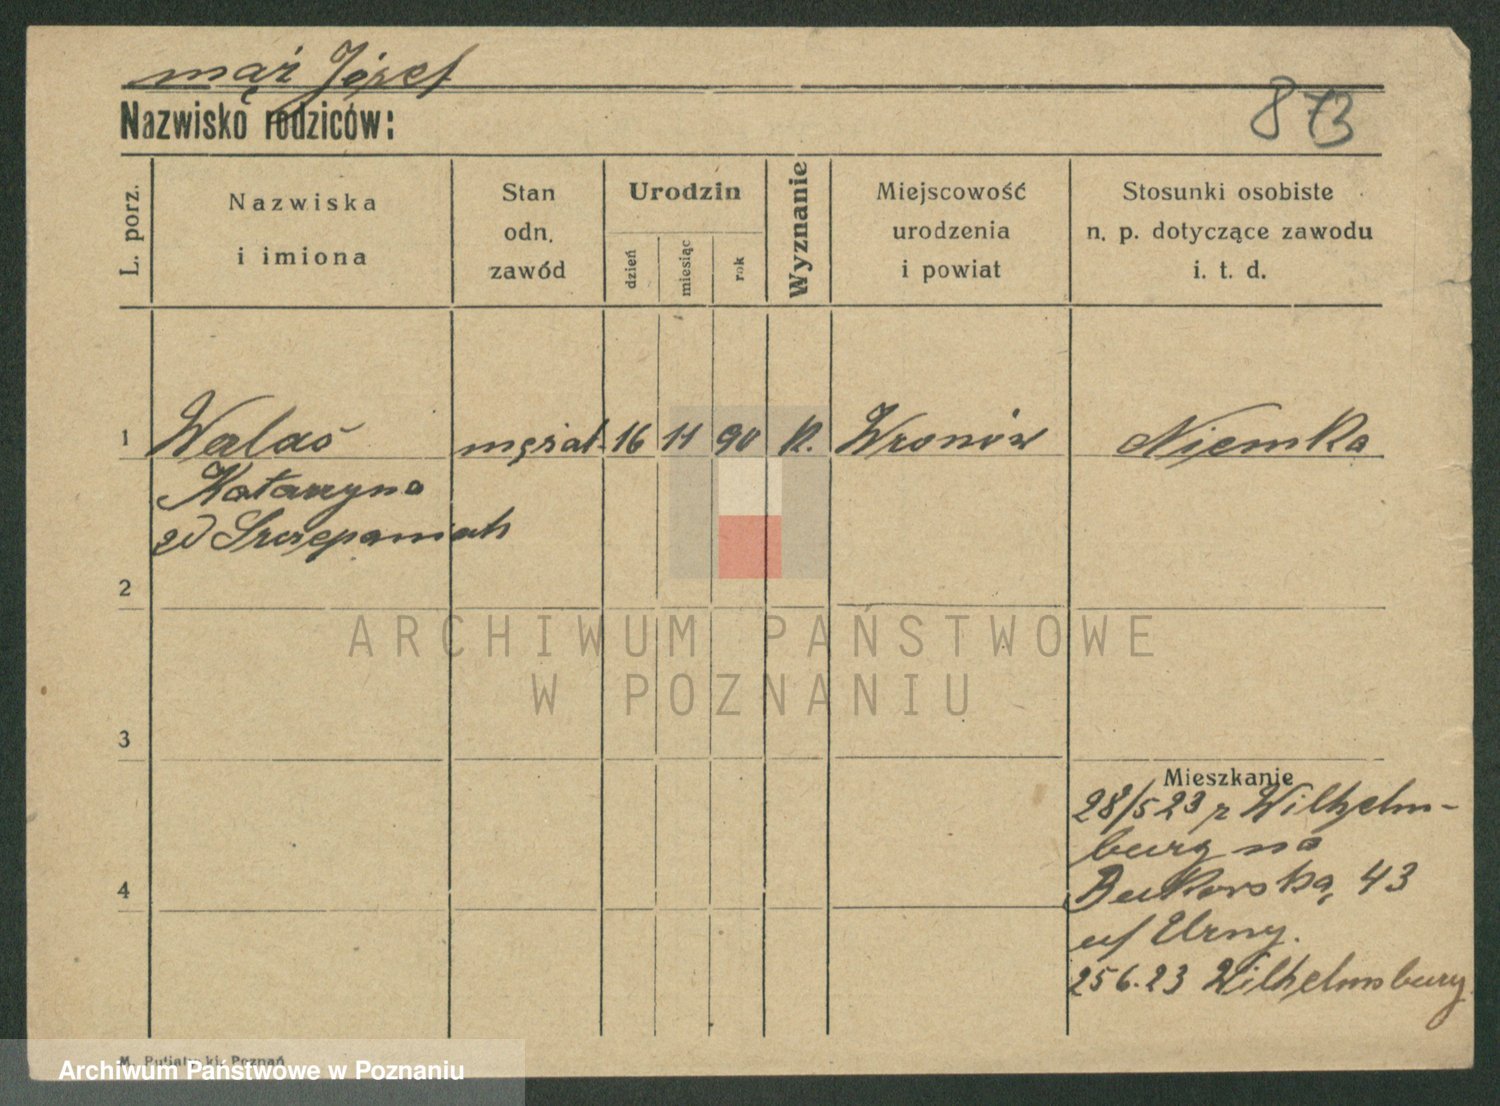 mąż Józef
Nazwisko rodziców:
873
L. porz.
Nazwiska
i imiona
Stan
odn.
zawód
Urodzin
dzień
miesiąc
rok
Wyznanie
Miejscowość
urodzenia
i powiat
Stosunki osobiste
n. p. dotyczące zawodu
i. t. d.
1 Walaś mężat. 16 11 90 k. Wronów Niemka
Katarzyna
zd Szczepaniak
2
ARCHIWUM PAŃSTWOWE
W POZNANIU
3
Mieszkanie
28/5 23 z Wilhelm-
burg na
Bukowską 43
u/ Urny.
4
25 6. 23 Wilhelmsburg
M. Putiatycki, Poznań
Archiwum Państwowe w Poznaniu